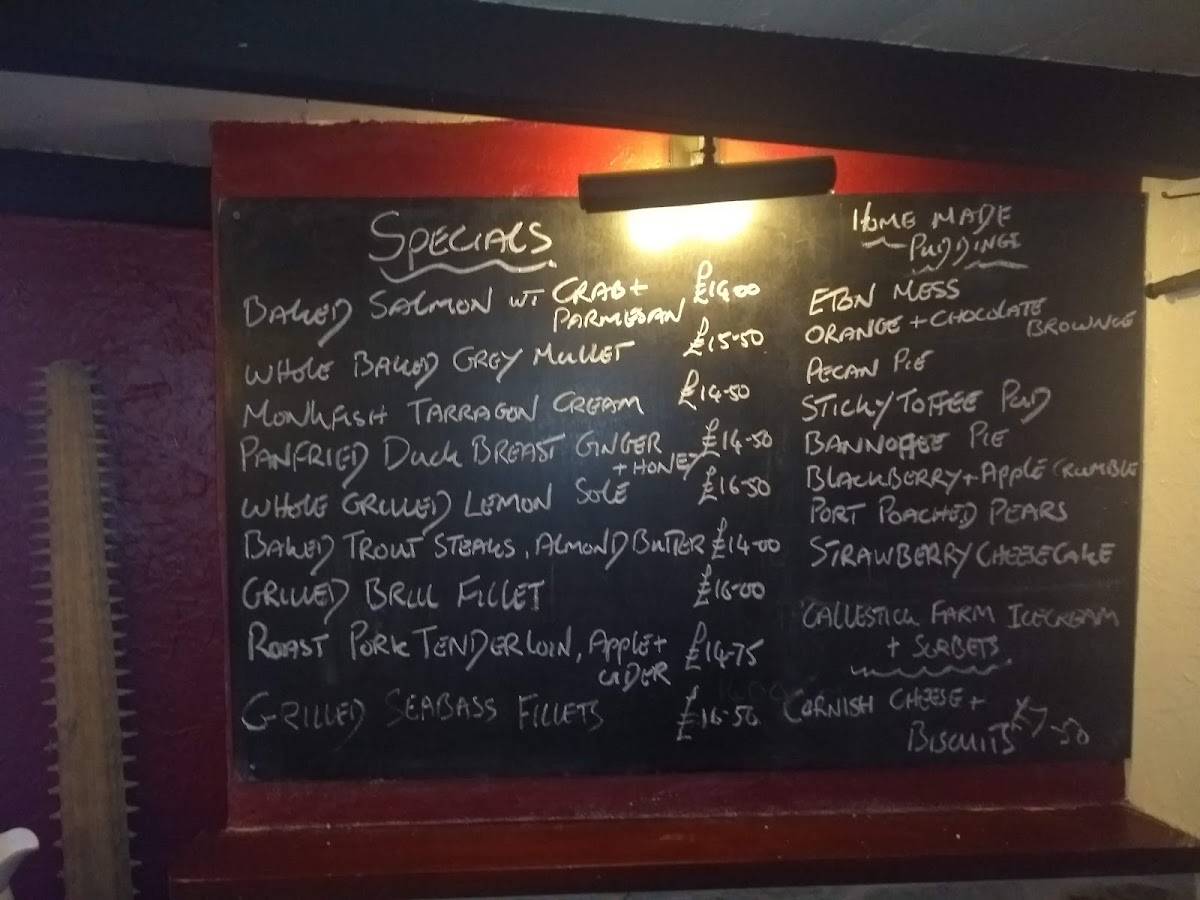 SPECIALS
BAKED SALMON WT CRAB + £14.00
PARMESAN
WHOLE BAKED GREY MULLET £15.50
MONKFISH TARRAGON CREAM £14.50
PANFRIED DUCK BREAST GINGER £14.50
+ HONEY
WHOLE GRILLED LEMON SOLE £16.50
BAKED TROUT STEAKS, ALMOND BUTTER £14.00
GRILLED BRILL FILLET £16.00
ROAST PORK TENDERLOIN, APPLE + £14.75
CIDER
GRILLED SEABASS FILLETS £16.50
HOME MADE
PUDDINGS
ETON MESS
ORANGE + CHOCOLATE
BROWNIE
PECAN PIE
STICKY TOFFEE PUD
BANNOFFEE PIE
BLACKBERRY + APPLE CRUMBLE
PORT POACHED PEARS
STRAWBERRY CHEESECAKE
CALLESTICK FARM ICECREAM
+ SORBETS
CORNISH CHEESE +
BISCUITS £7.50